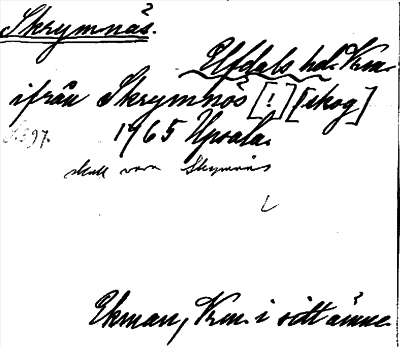 Skrymnäs.
Elfdals hd. Vrm.
ifrån Skrymnös [!] [skog]
1765 Upsala.
skall vara Skrymnäs
Ekman, Vrm. i sitt ämne.